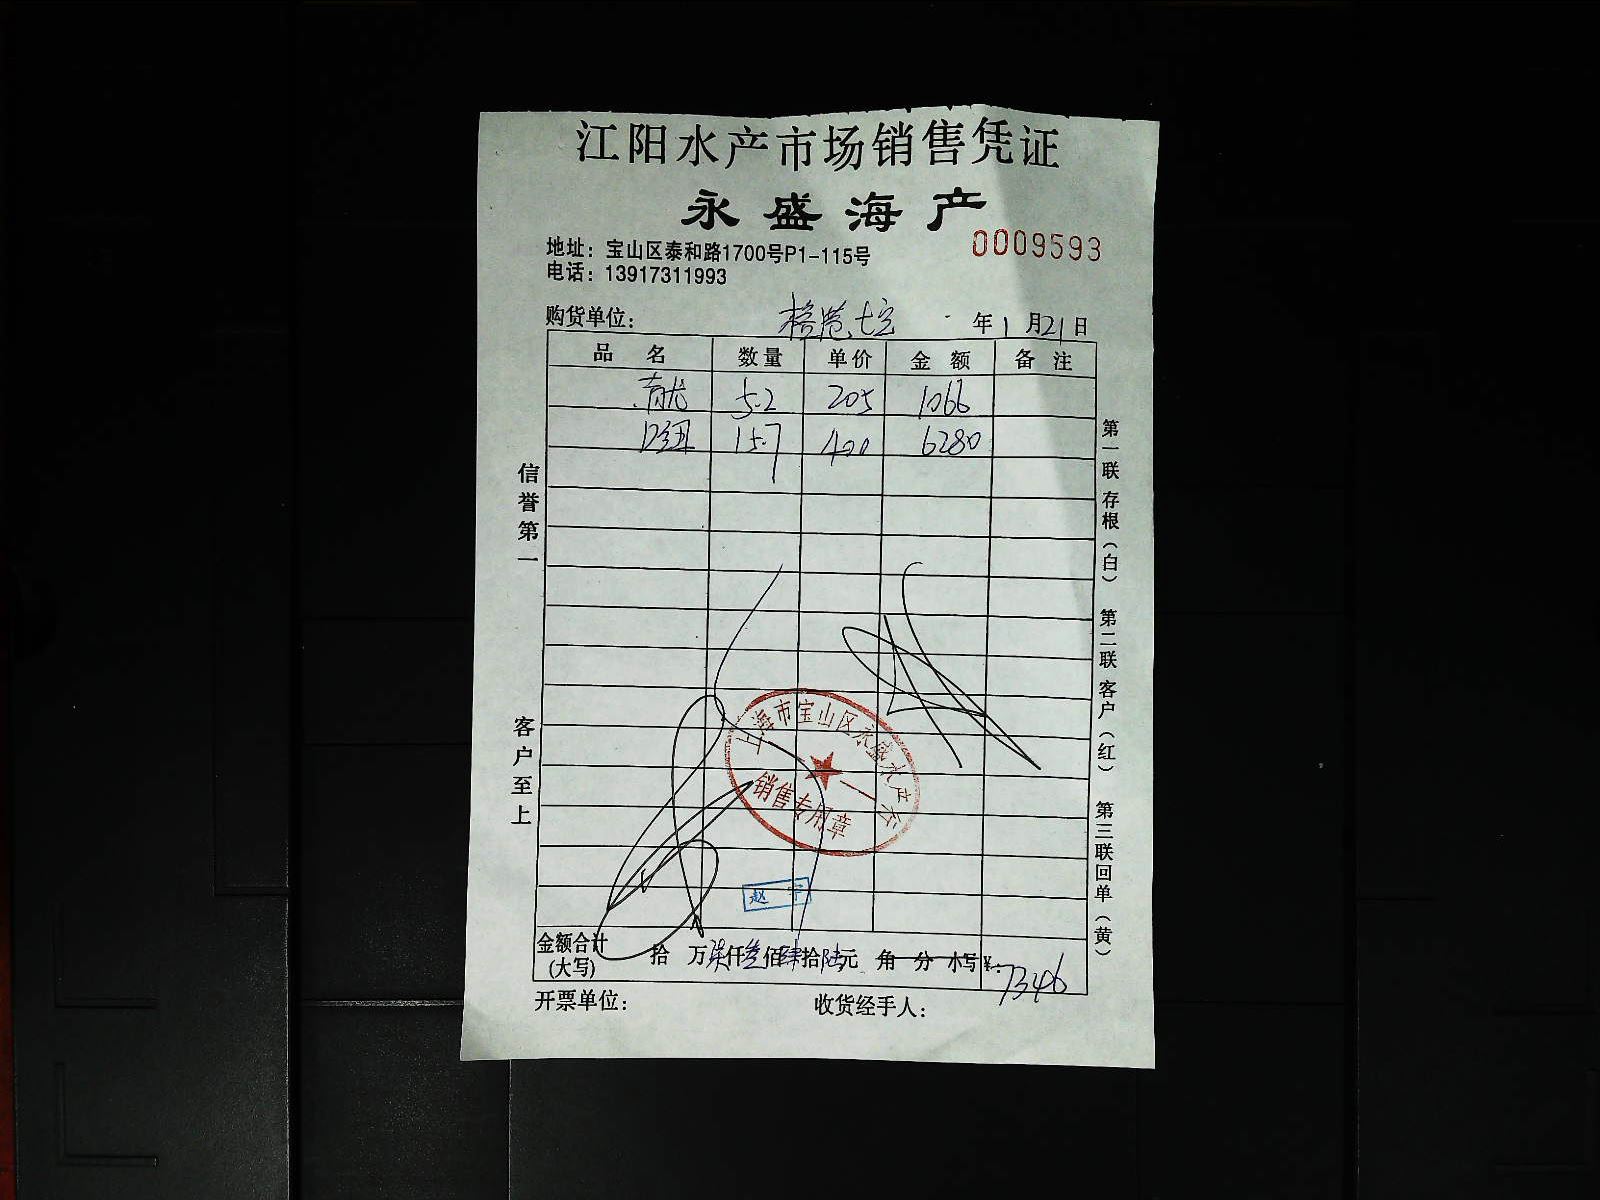 江阳水产市场销售凭证
永盛海产
0009593
地址：宝山区泰和路1700号P1-115号
电话：13917311993
购货单位： 年 1 月 21 日
品名 数量 单价 金额 备注
青龙 5.2 205 1066
15.7 400 6280
信誉第一
客户至上
第一联 存根（白） 第二联 客户（红） 第三联 回单（黄）
上海市宝山区永盛水产
销售专用章
赵
金额合计 拾 万 柒 仟 叁 佰 肆 拾 陆 元 角 分 小写￥：7346
(大写)
开票单位： 收货经手人：